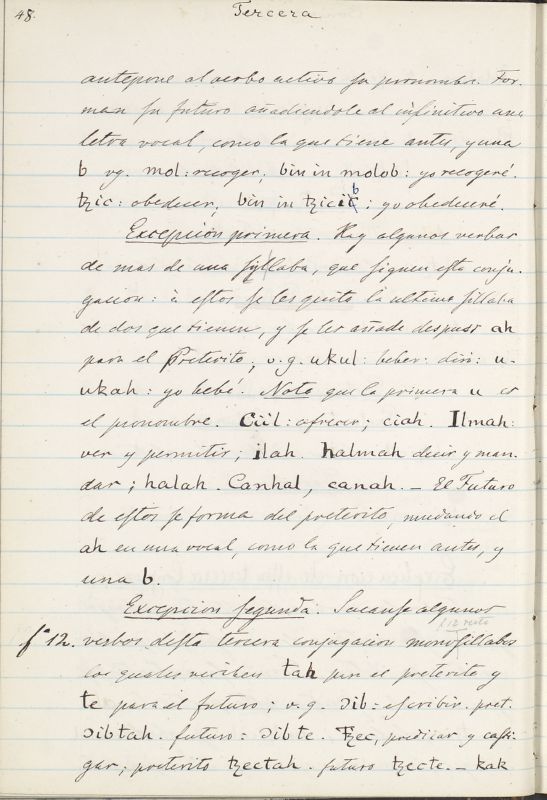 48.
Tercera
antepone al verbo activo su pronombre. For-
man su futuro añadiendole al infinitivo una
letra vocal, como la que tiene antes, y una
b vg. mol: recoger, bin in molob: yo recogeré.
ꜩic: obedecer, bin in ꜩiciib: yo obedeceré.
Excepcion primera. Hay algunos verbos
de mas de una syllaba, que siguen esta conju-
gacion: à estos se les quita la ultima sillaba
de dos que tienen, y se les añade despues ah
para el Preterito, v.g. ukul: beber: dirè: u-
ukah: yo bebé. Nota que la primera u es
el pronombre. Ciil: ofrecer; ciah. Ilmah:
ver y permitir; ilah. halmah decir y man-
dar; halah. Canhal, canah. — El Futuro
de estos se forma del preterito, mudando el
ah en una vocal, como la que tienen antes, y
una b.
Excepcion segunda: Sacanse algunos
f 12 recto
fº 12. verbos desta tercera conjugacion monosillabos
los quales reciben tah para el preterito y
te para el futuro; v.g. ɔib: escribir. pret.
ɔibtah. futuro: ɔibte. Ꜩec, predicar y casti-
gar; preterito ꜩectah. futuro ꜩecte. — kak